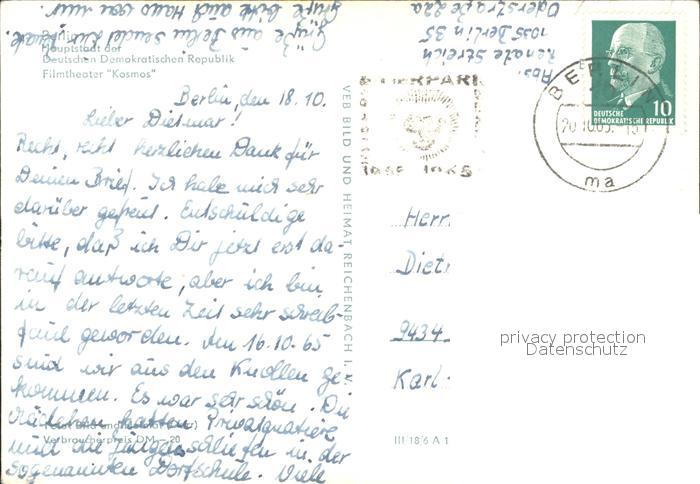 Berlin
Hauptstadt der
Deutschen Demokratischen Republik
Filmtheater "Kosmos"
Berlin, den 18.10.
Lieber Dietmar!
Recht, recht herzlichen Dank für
Deinen Brief. Ich habe mich sehr
darüber gefreut. Entschuldige
bitte, daß ich Dir jetzt erst da-
rauf antworte, aber ich bin
in der letzten Zeit sehr schreib-
faul geworden. Am 16.10.65
sind wir aus den Knollen ge-
kommen. Es war sehr schön. Die
Mädchen hatten Privatquatiere
und die Jungen schliefen in der
sogenannten Dorfschule. Viele
Grüße aus Berlin sendet
Grüße bitte auch
Verbraucherpreis DM -,20
VEB BILD UND HEIMAT REICHENBACH I. V.
Abs.
Renate Streich
1035 Berlin 35
Oderstraße 22a
BERLIN
20.10.65
ma
10
DEUTSCHE
DEMOKRATISCHE REPUBLIK
Herr
Diet
9434
Karl
III 18 6 A 1
privacy protection
Datenschutz